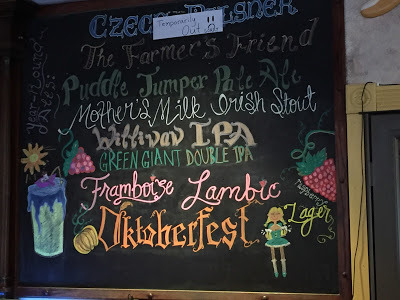 Czech Pilsner
Temporarily
Out !!
The Farmer's Friend
Year-Round
Ales:
Puddle Jumper Pale Ale
Mother's Milk Irish Stout
IPA
GREEN GIANT DOUBLE IPA
Framboise Lambic
Raspberry
Lager
Oktoberfest